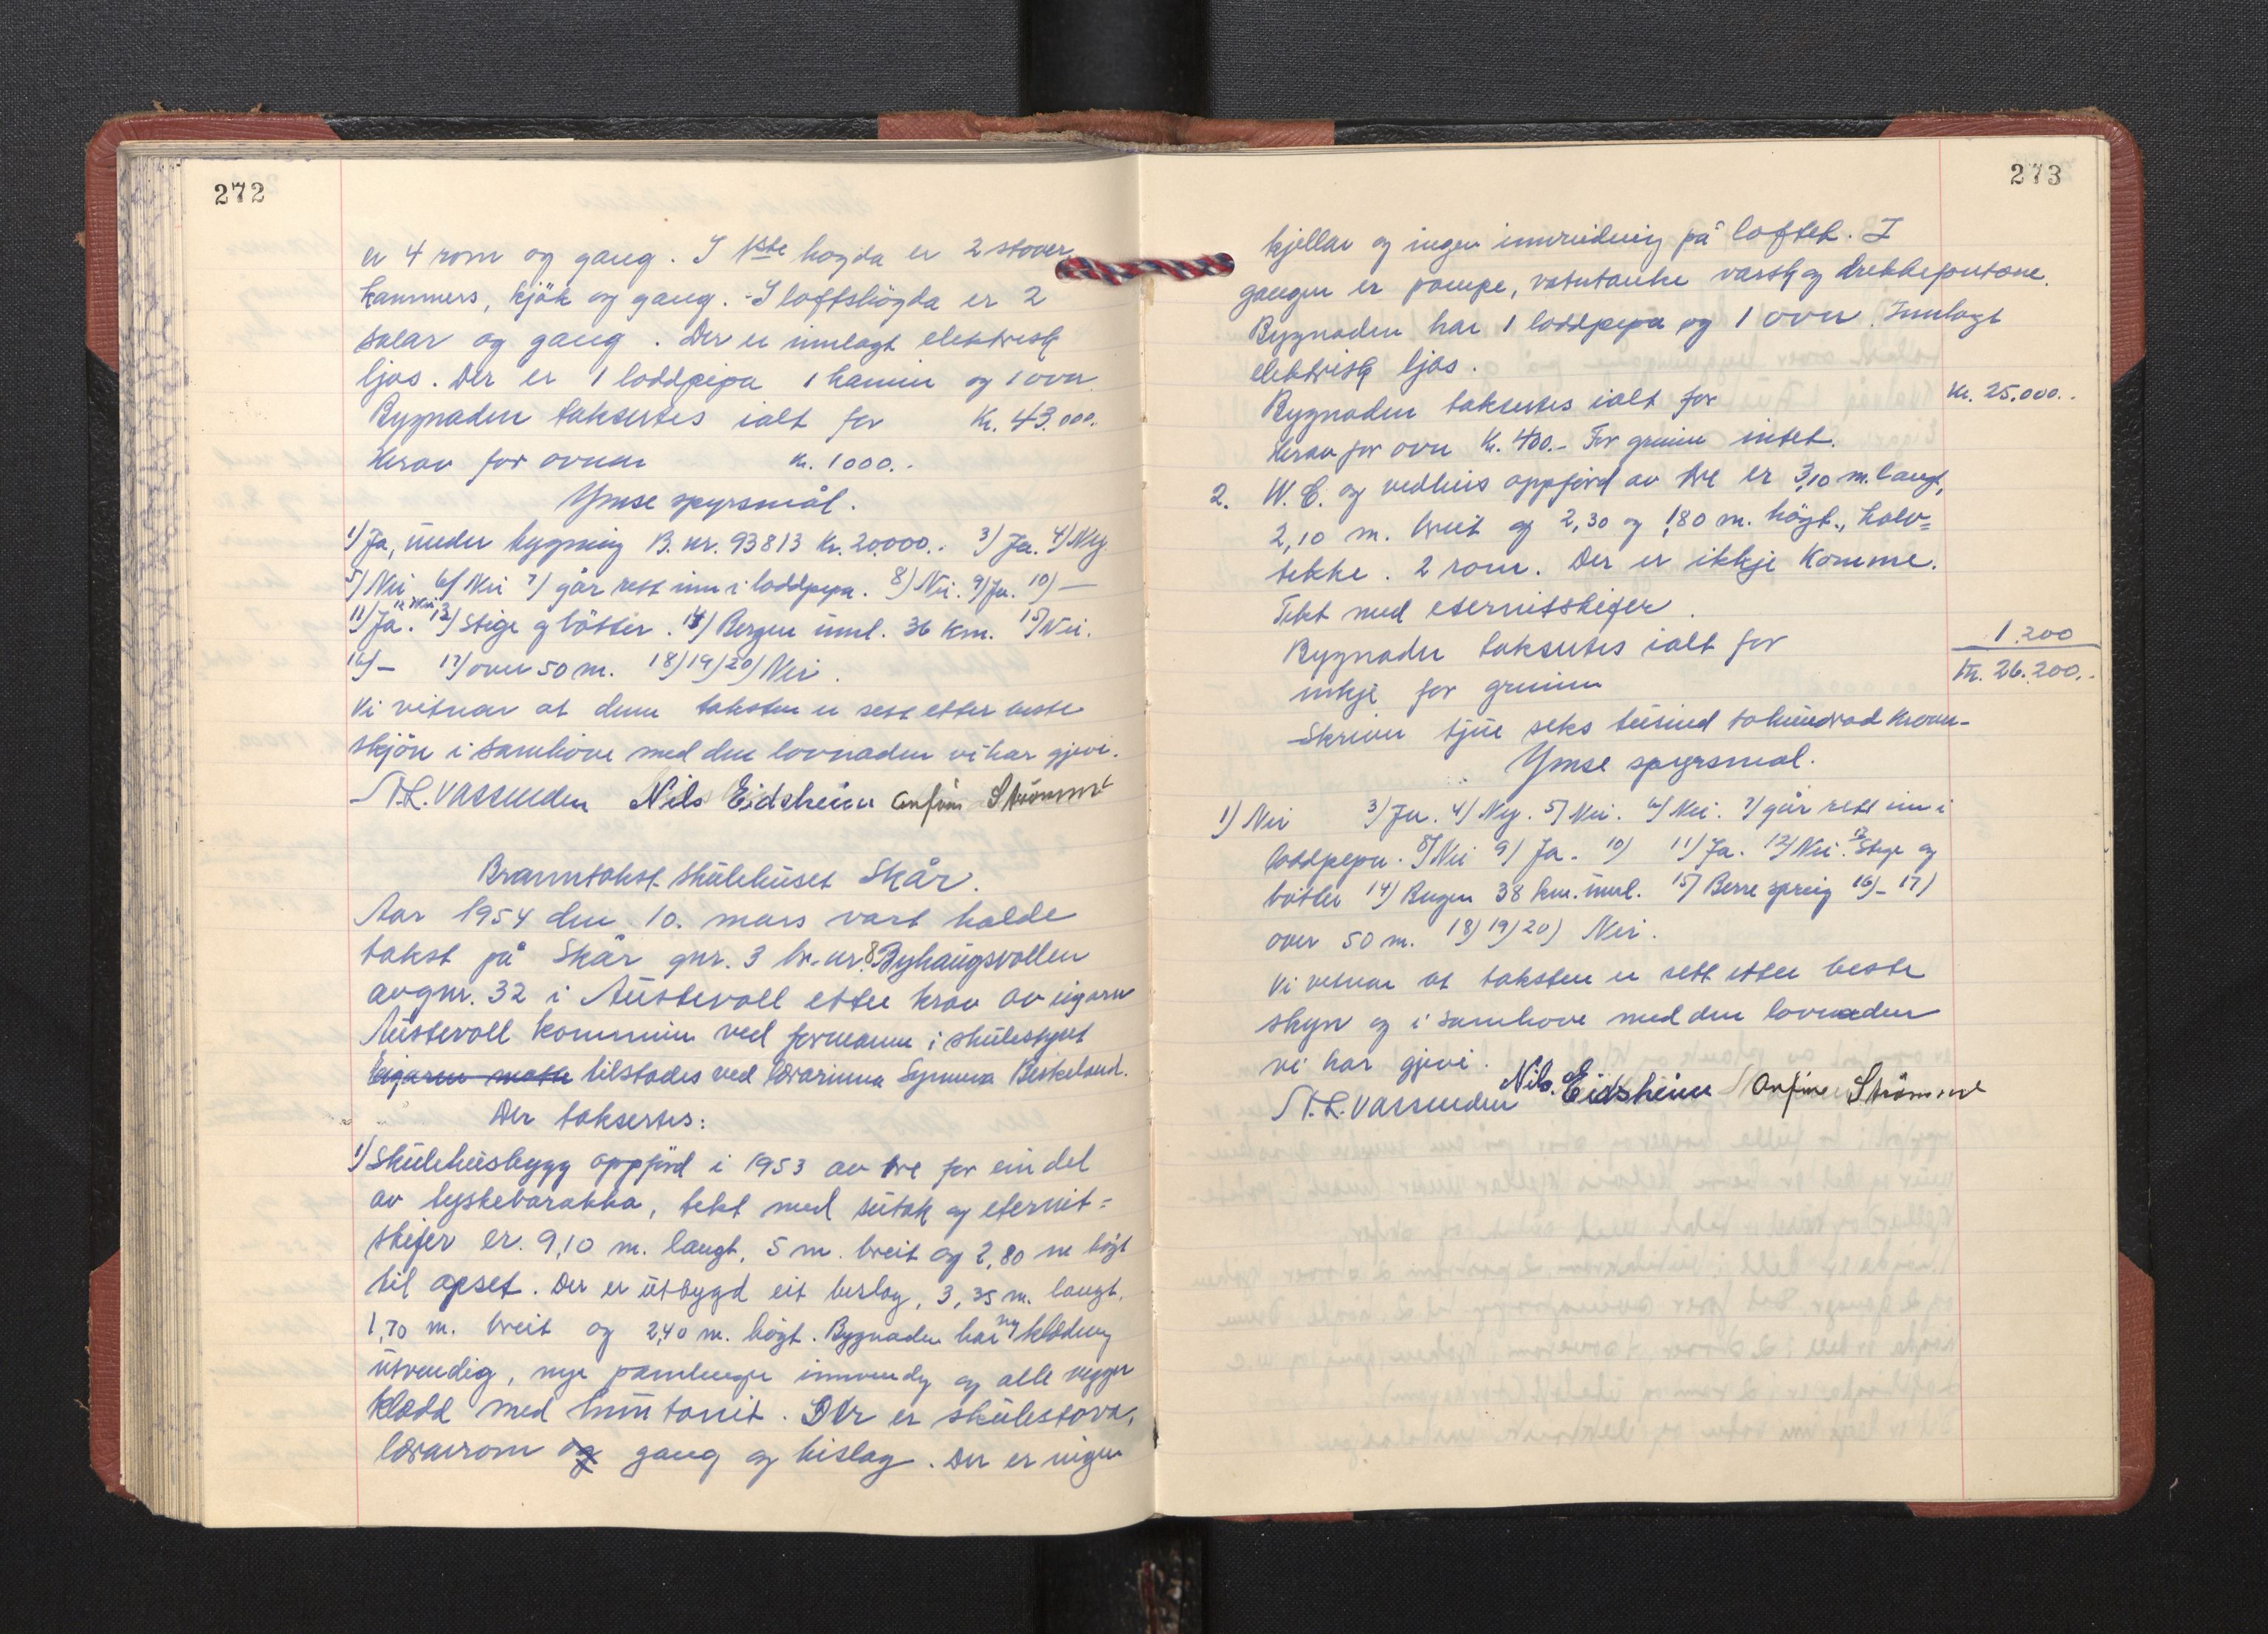 272
er 4 rom og gang. I 1ste høgda er 2 stover
kammers, kjøk og gang. - I loftshögda er 2
salar og gang. Der er innlagt elektrisk
ljos. Der er 1 loddpipa 1 kamin og 1 ovn.
Bygnaden taksertes ialt for Kr. 43.000.
Herav for ovnar Kr. 1000.-
Ymse spyrsmål.
1) Ja, under bygning B. nr. 93813 Kr. 20.000.- 3) Ja. 4) Ny
5) Nei 6) Nei 7) går rett inn i loddpipa. 8) Nei. 9) Ja. 10) —
11) Ja. 12 Nei 13) Stige og bötter. 14) Bergen uml. 36 km. 15) Nei.
16) - 17) over 50 m. 18) 19) 20) Nei.
Vi vitnar at denne taksten er sett etter beste
skjön i samhöve med den lovnaden vi har gjevi.
N.L. Vassenden Nils Eidsheim Anfin Strömme
Branntakst skulehuset Skår.
Aar 1954 den 10. mars vart halde
takst på Skår gnr. 3 br.nr 8 Byhaugsvollen
av gnr. 32 i Austevoll etter krav av eigaren
Austevoll kommune ved formann i skulestyret
Eigaren møtte tilstades ved lærarinna Synneva Birkeland.
Der taksertes:
1) Skulehusbygg oppförd i 1953 av tre for ein del
av tyskebarakka, tekt med sutak og eternit=
skifer er. 9,10 m. langt, 5 m. breit og 2,80 m högt
til opset. Der er utbygd eit bislag, 3,35 m. langt.
1,70 m. breit og 2,40 m. högt. Bygnaden har ny klædning
utvendig, nye panelinger innvendig og alle vegger
klædd med huntonit. Der er skulestova,
lærarrom og gang og bislag. Der er ingen
273
kjellar og ingen innreidning på loftet. I
gangen er pumpe, vatntanke vask og drekkefontene.
Bygnaden har 1 loddpipa og 1 ovn. Innlagt
elektrisk ljos.
Bygnaden taksertes ialt for Kr. 25.000.-
Herav for ovn Kr. 400.- For grunn intet.
2. W.C. og vedhus oppförd av tre er 3,10 m. langt,
2,10 m. breit og 2,30 og 1,80 m. högt., halv=
tekke. 2 rom. Der er ikkje komme.
Tekt med eternitskifer.
Bygnaden taksertes ialt for 1.200
inkje for grunnen Kr. 26.200.-
Skriver tjue seks tusind tohundrad kroner-
Ymse spyrsmal.
1) Nei 3) Ja. 4) Ny. 5) Nei. 6) Nei. 7) går rett inn i
loddpipa. 8) Nei 9) Ja. 10) 11) Ja. 12) Nei. 13 Stige og
bötter 14) Bergen 38 km. uml. 15) Berre spreng 16) - 17)
over 50 m. 18) 19) 20) Nei.
Vi vitnar at taksten er sett etter beste
skyn og i samhøve med den lovnaden
vi har gjevi.
N.L. Vassenden Nils Eidsheim Anfin Strömme